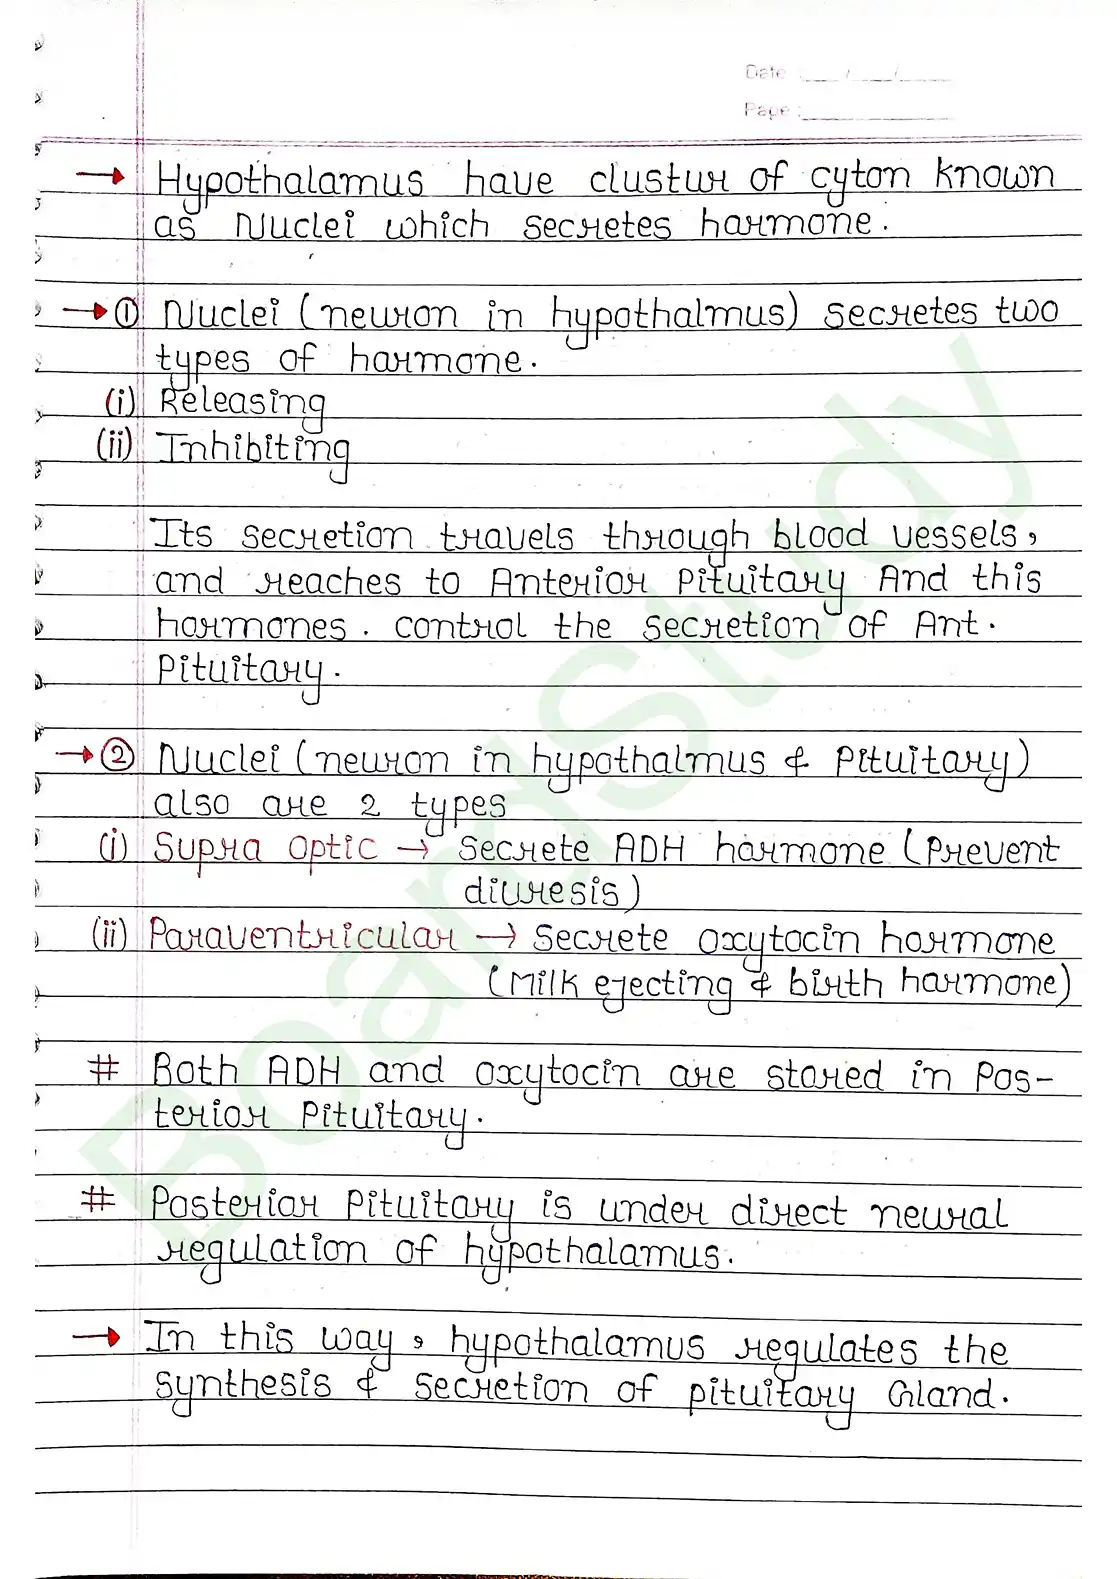 Date : ___/___/___
Page : ___
→ Hypothalamus have clustur of cyton known
as Nuclei which secretes harmone.
→ ① Nuclei (neuron in hypothalmus) secretes two
types of harmone.
(i) Releasing
(ii) Inhibiting
Its secretion travels through blood vessels,
and reaches to Anterior Pituitary And this
harmones. control the secretion of Ant.
Pituitary.
→ ② Nuclei (neuron in hypothalmus & Pituitary)
also are 2 types
(i) Supra Optic → Secrete ADH harmone (Prevent
diuresis)
(ii) Paraventricular → Secrete oxytocin harmone
(Milk ejecting & birth harmone)
# Both ADH and oxytocin are stored in Pos-
terior Pituitary.
# Posterior Pituitary is under direct neural
regulation of hypothalamus.
→ In this way, hypothalamus regulates the
synthesis & secretion of pituitary Gland.
BoardStudy